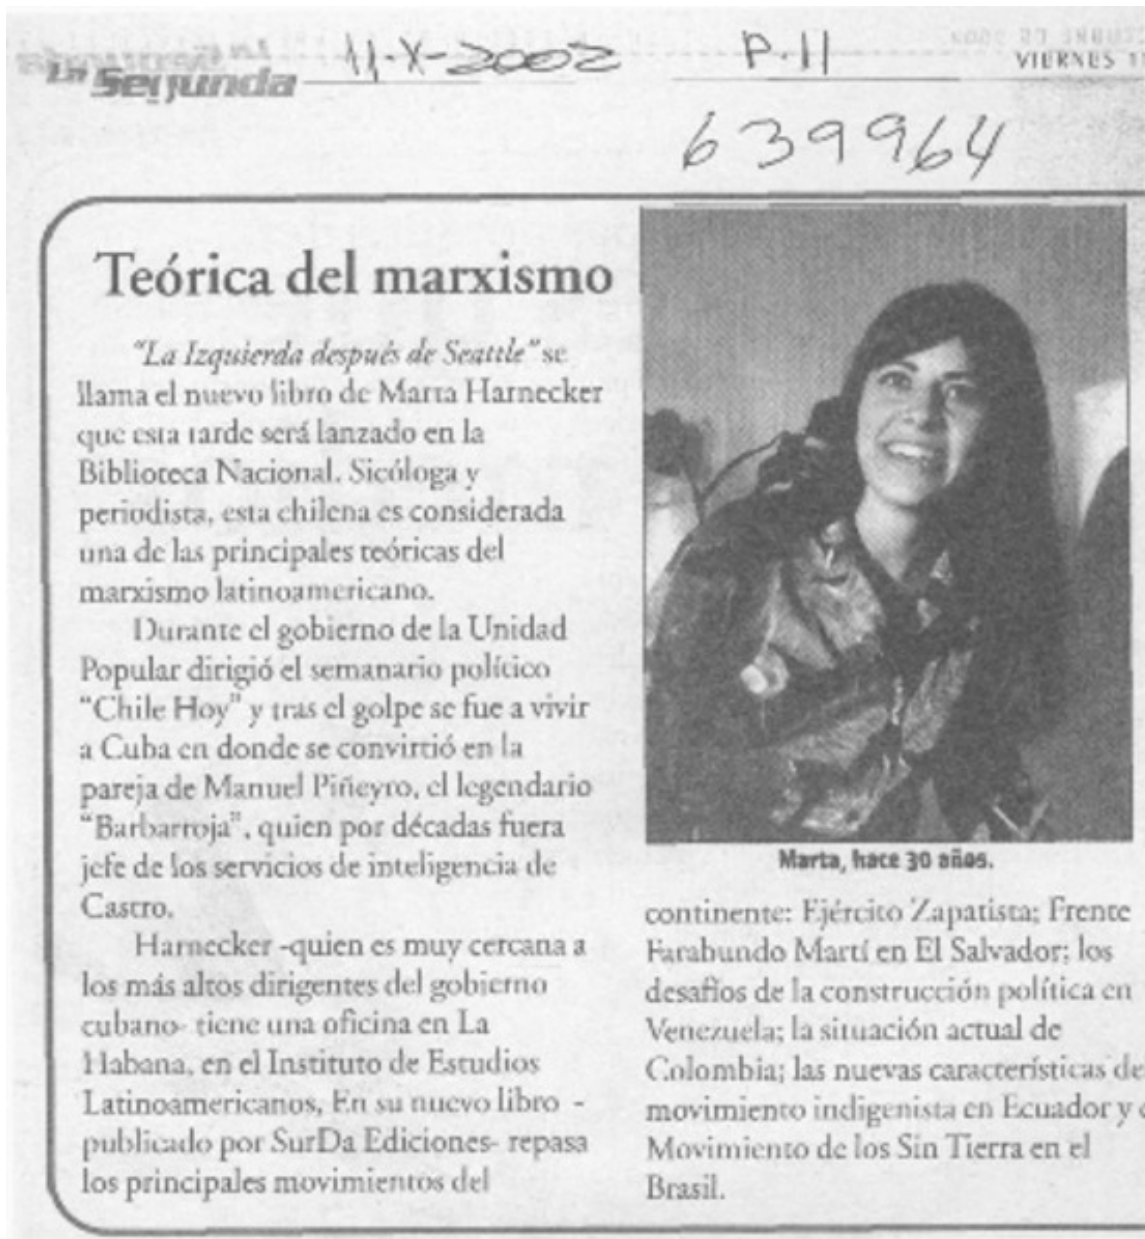 La Segunda
11-X-2002
P.11
VIERNES 11
639964
Teórica del marxismo
"La Izquierda después de Seattle" se
llama el nuevo libro de Marta Harnecker
que esta tarde será lanzado en la
Biblioteca Nacional. Sicóloga y
periodista, esta chilena es considerada
una de las principales teóricas del
marxismo latinoamericano.
Durante el gobierno de la Unidad
Popular dirigió el semanario político
"Chile Hoy" y tras el golpe se fue a vivir
a Cuba en donde se convirtió en la
pareja de Manuel Piñeyro, el legendario
"Barbarroja", quien por décadas fuera
jefe de los servicios de inteligencia de
Castro.
Harnecker -quien es muy cercana a
los más altos dirigentes del gobierno
cubano- tiene una oficina en La
Habana, en el Instituto de Estudios
Latinoamericanos. En su nuevo libro -
publicado por SurDa Ediciones- repasa
los principales movimientos del
Marta, hace 30 años.
continente: Ejército Zapatista; Frente
Farabundo Martí en El Salvador; los
desafíos de la construcción política en
Venezuela; la situación actual de
Colombia; las nuevas características de
movimiento indigenista en Ecuador y
Movimiento de los Sin Tierra en el
Brasil.